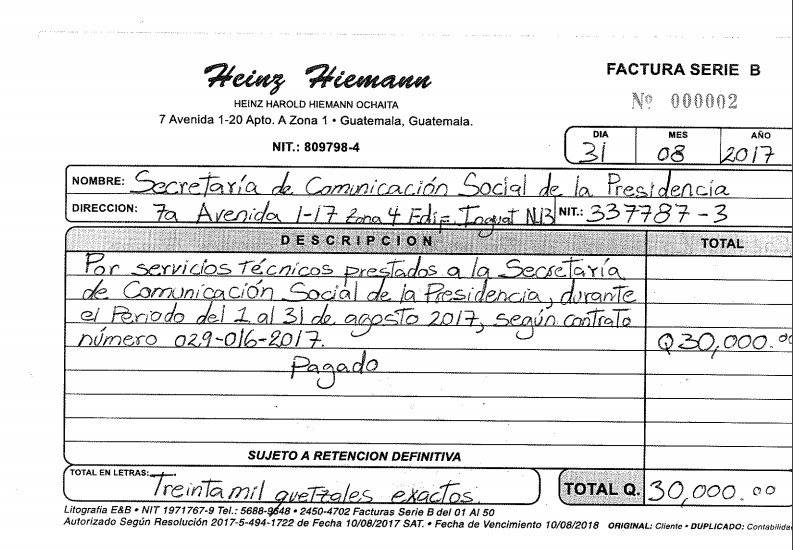 Heinz Hiemann
FACTURA SERIE B
HEINZ HAROLD HIEMANN OCHAITA
Nº 000002
7 Avenida 1-20 Apto. A Zona 1 • Guatemala, Guatemala.
NIT.: 809798-4
DIA MES AÑO
31 08 2017
NOMBRE: Secretaría de Comunicación Social de la Presidencia
DIRECCION: 7a Avenida 1-17 Zona 4 Edif. Inguat NIT.: 337787-3
DESCRIPCION TOTAL
Por servicios técnicos prestados a la Secretaría
de Comunicación Social de la Presidencia, durante
el Periodo del 1 al 31 de agosto 2017, según contrato
número 029-016-2017. Q30,000.00
Pagado
SUJETO A RETENCION DEFINITIVA
TOTAL EN LETRAS: Treinta mil quetzales exactos. TOTAL Q. 30,000.00
Litografía E&B • NIT 1971767-9 Tel.: 5688-9648 • 2450-4702 Facturas Serie B del 01 Al 50
Autorizado Según Resolución 2017-5-494-1722 de Fecha 10/08/2017 SAT. • Fecha de Vencimiento 10/08/2018 ORIGINAL: Cliente • DUPLICADO: Contabilida